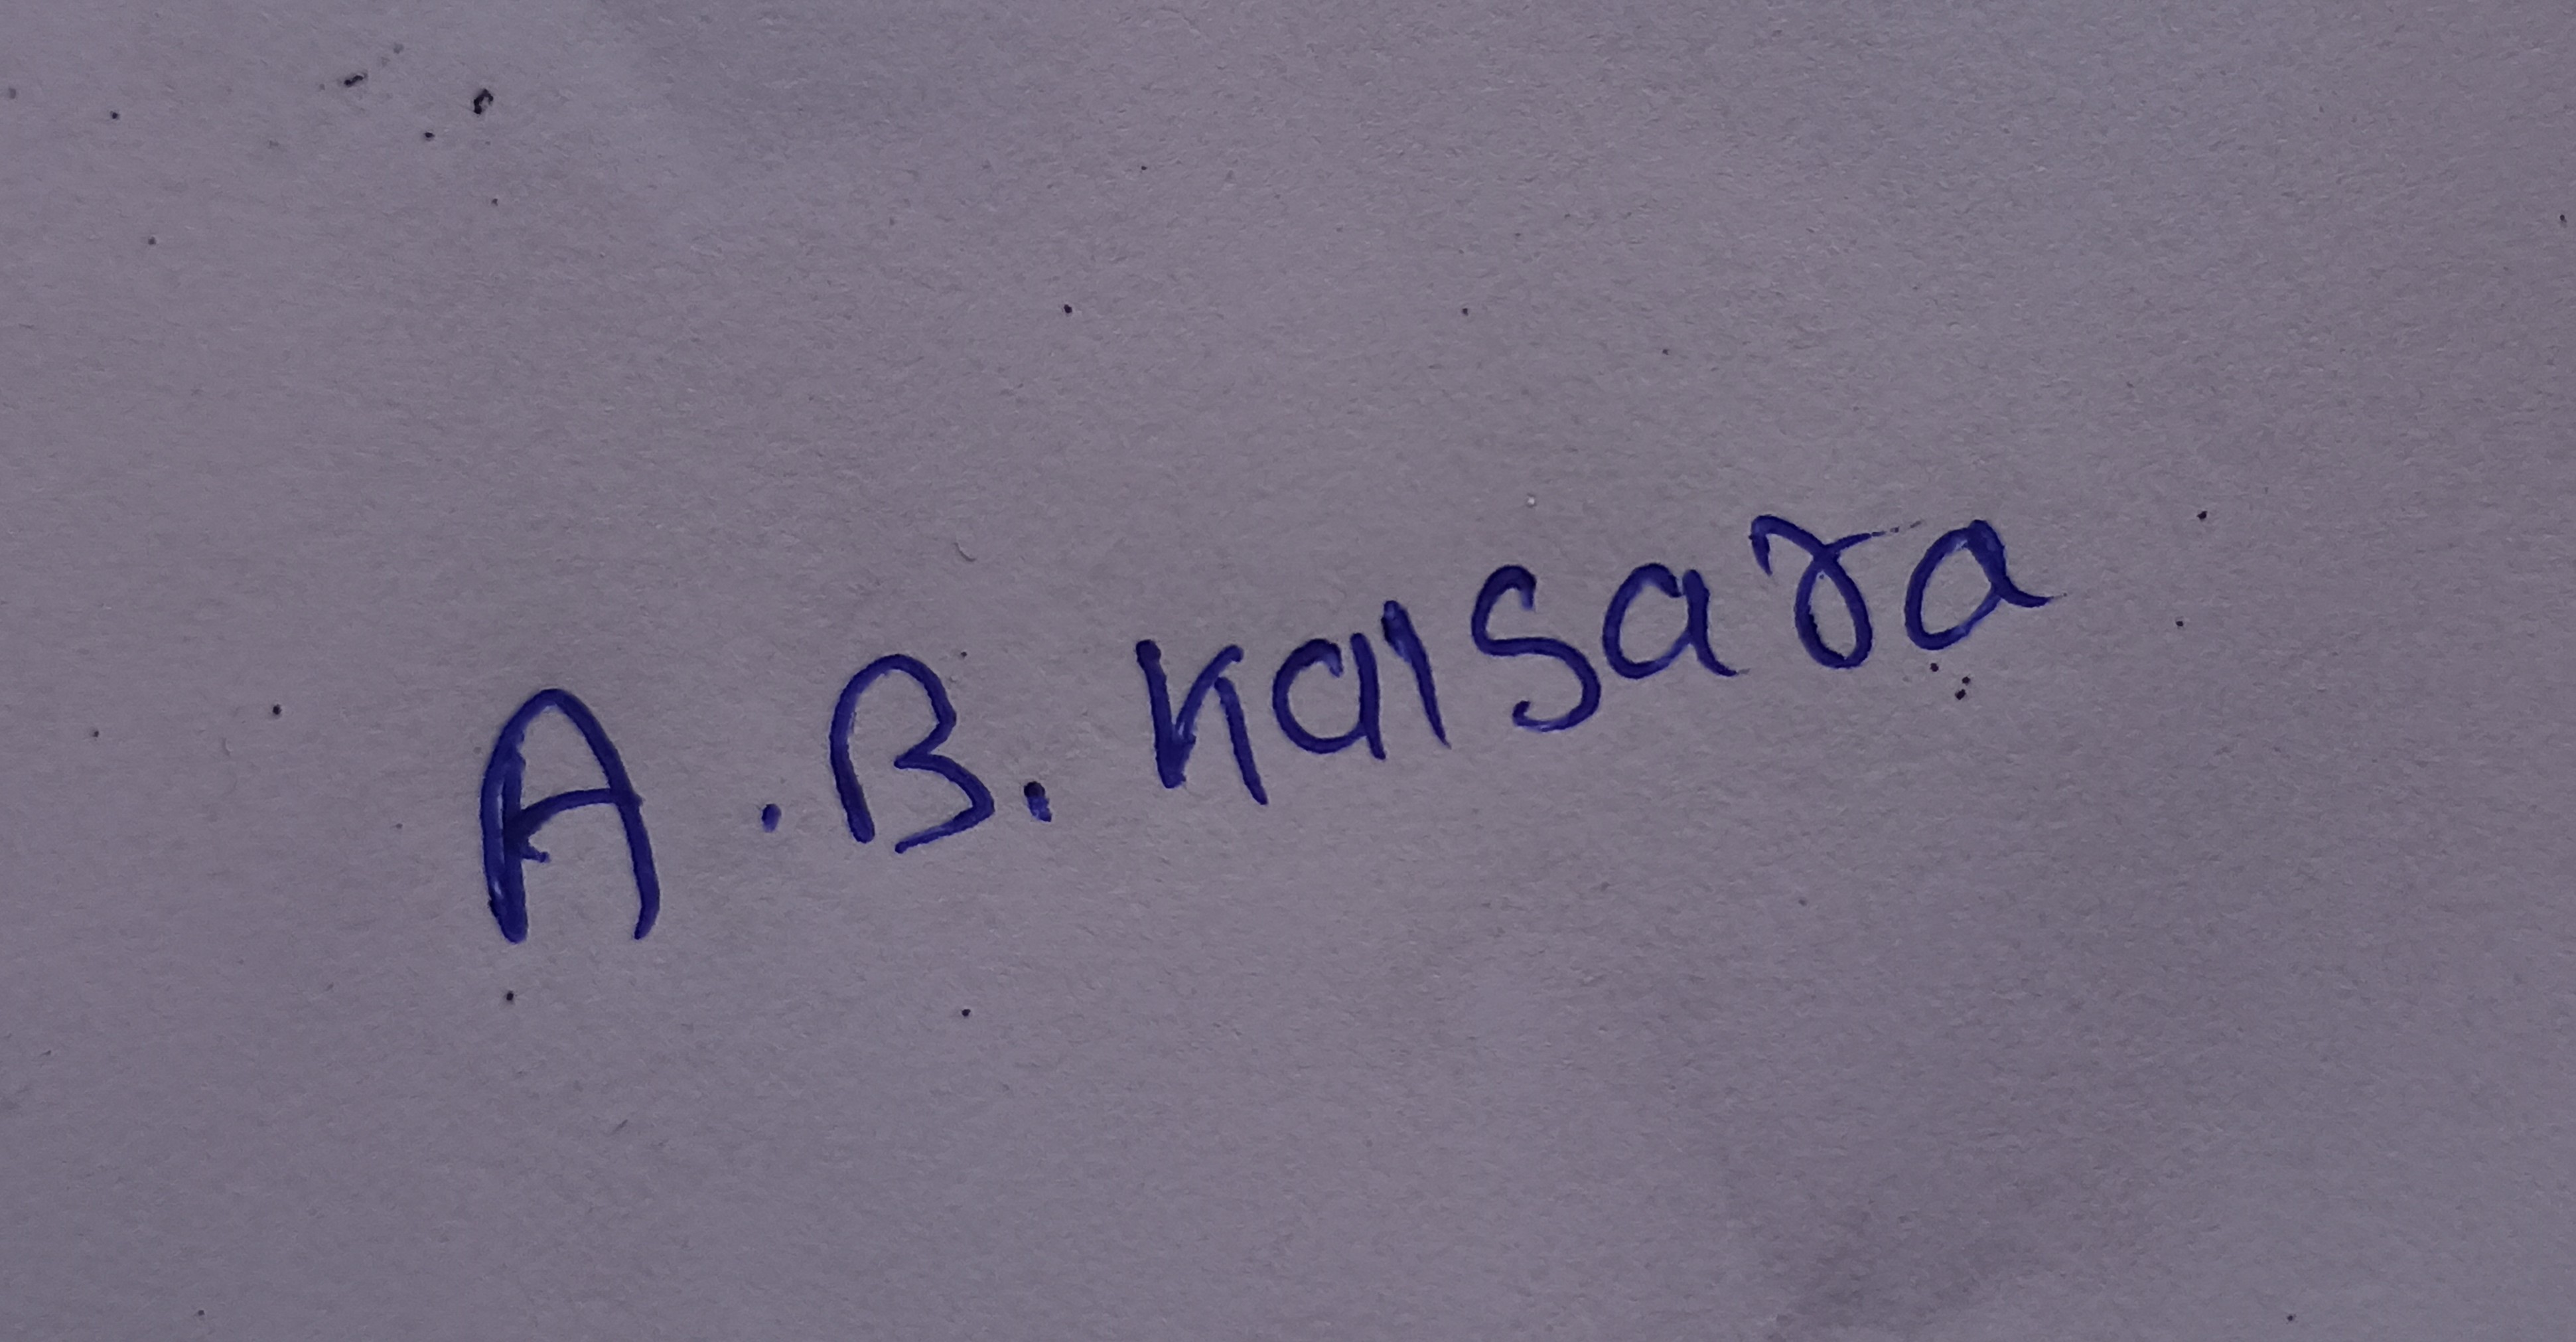 A.B. Kalsara